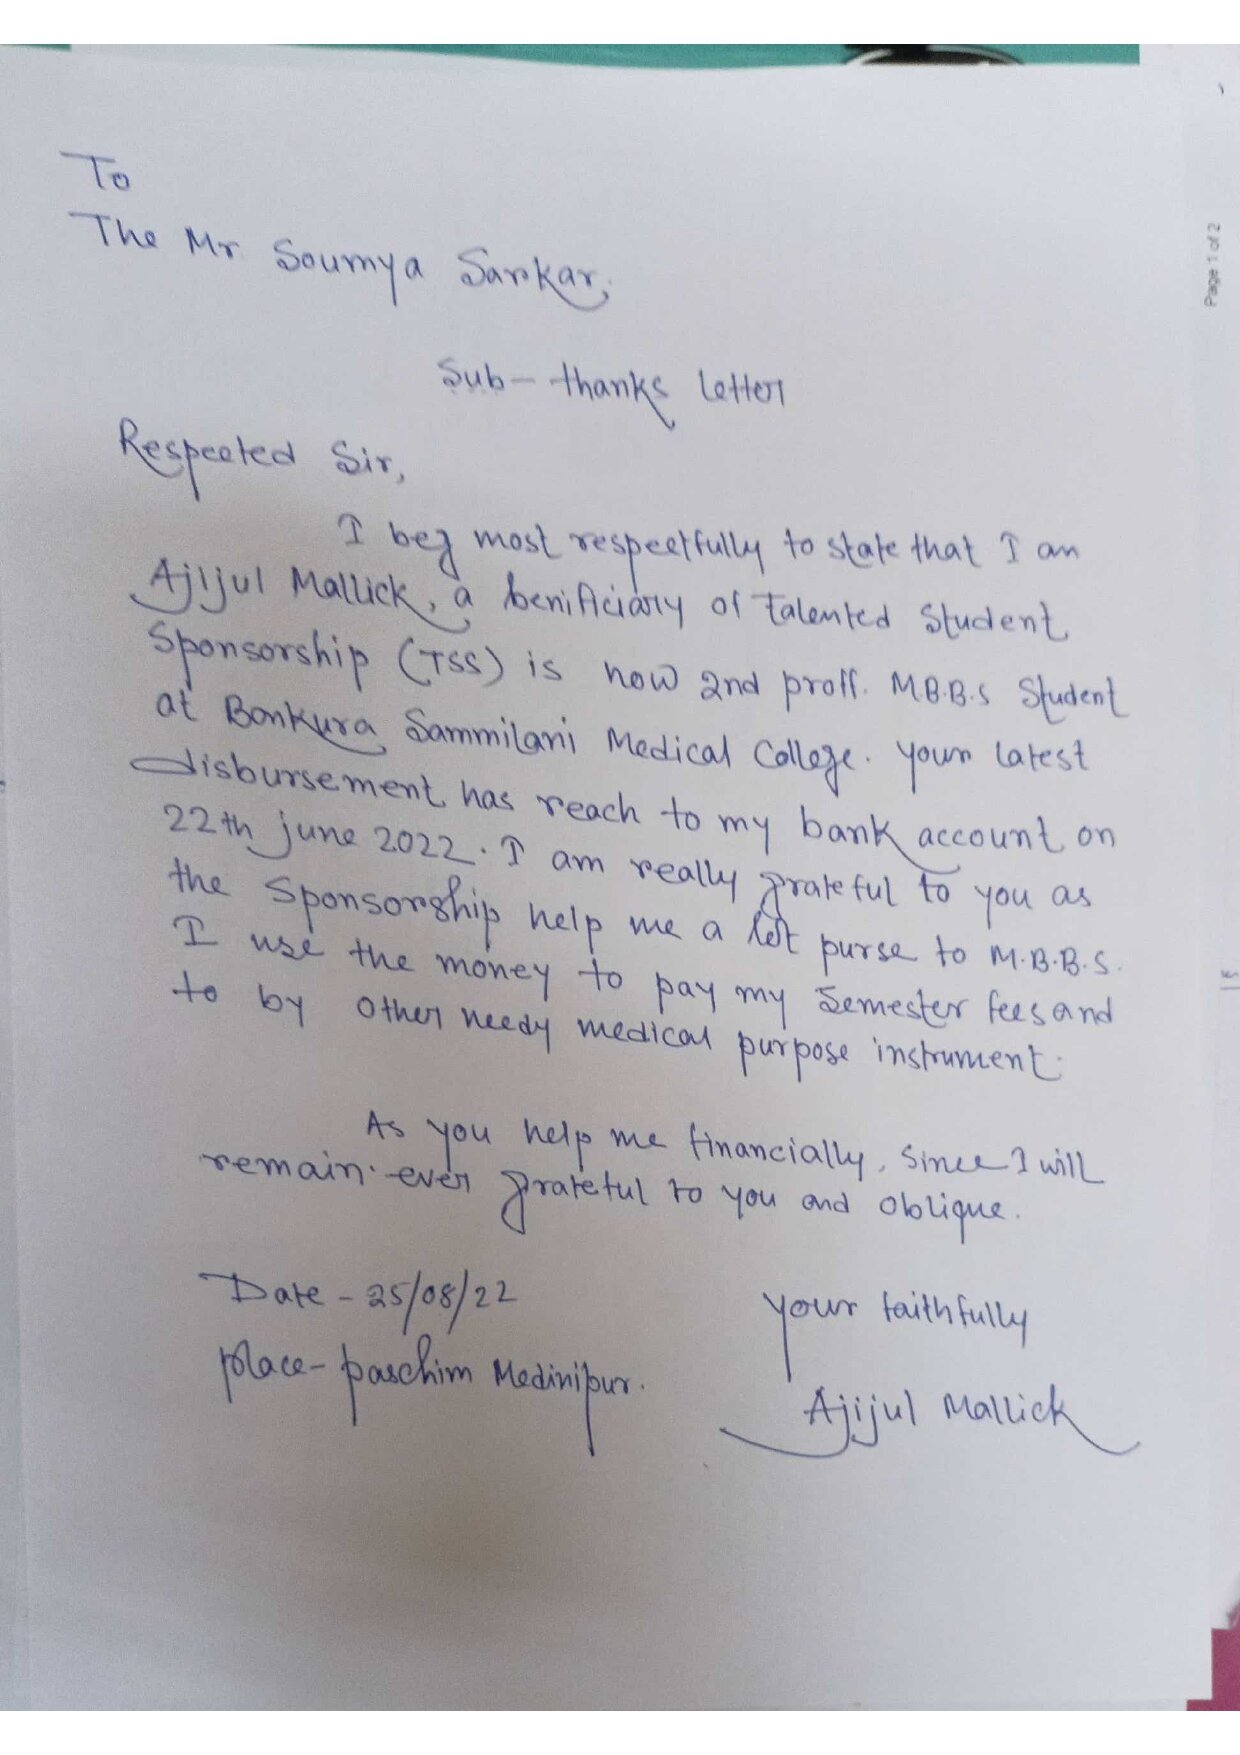 To
The Mr Soumya Sarkar,
Sub - thanks letter
Respected Sir,
I beg most respectfully to state that I am
Ajijul Mallick, a benificiary of Talented Student
Sponsorship (TSS) is now 2nd proff. M.B.B.S Student
at Bankura Sammilani Medical College. your latest
disbursement has reach to my bank account on
22th june 2022. I am really grateful to you as
the Sponsorship help me a lot purse to M.B.B.S.
I use the money to pay my Semester fees and
to by other needy medical purpose instrument.
As you help me financially, since I will
remain ever grateful to you and oblique.
Date - 25/08/22
place - paschim Medinipur.
your faithfully
Ajijul Mallick
Page 1 of 2